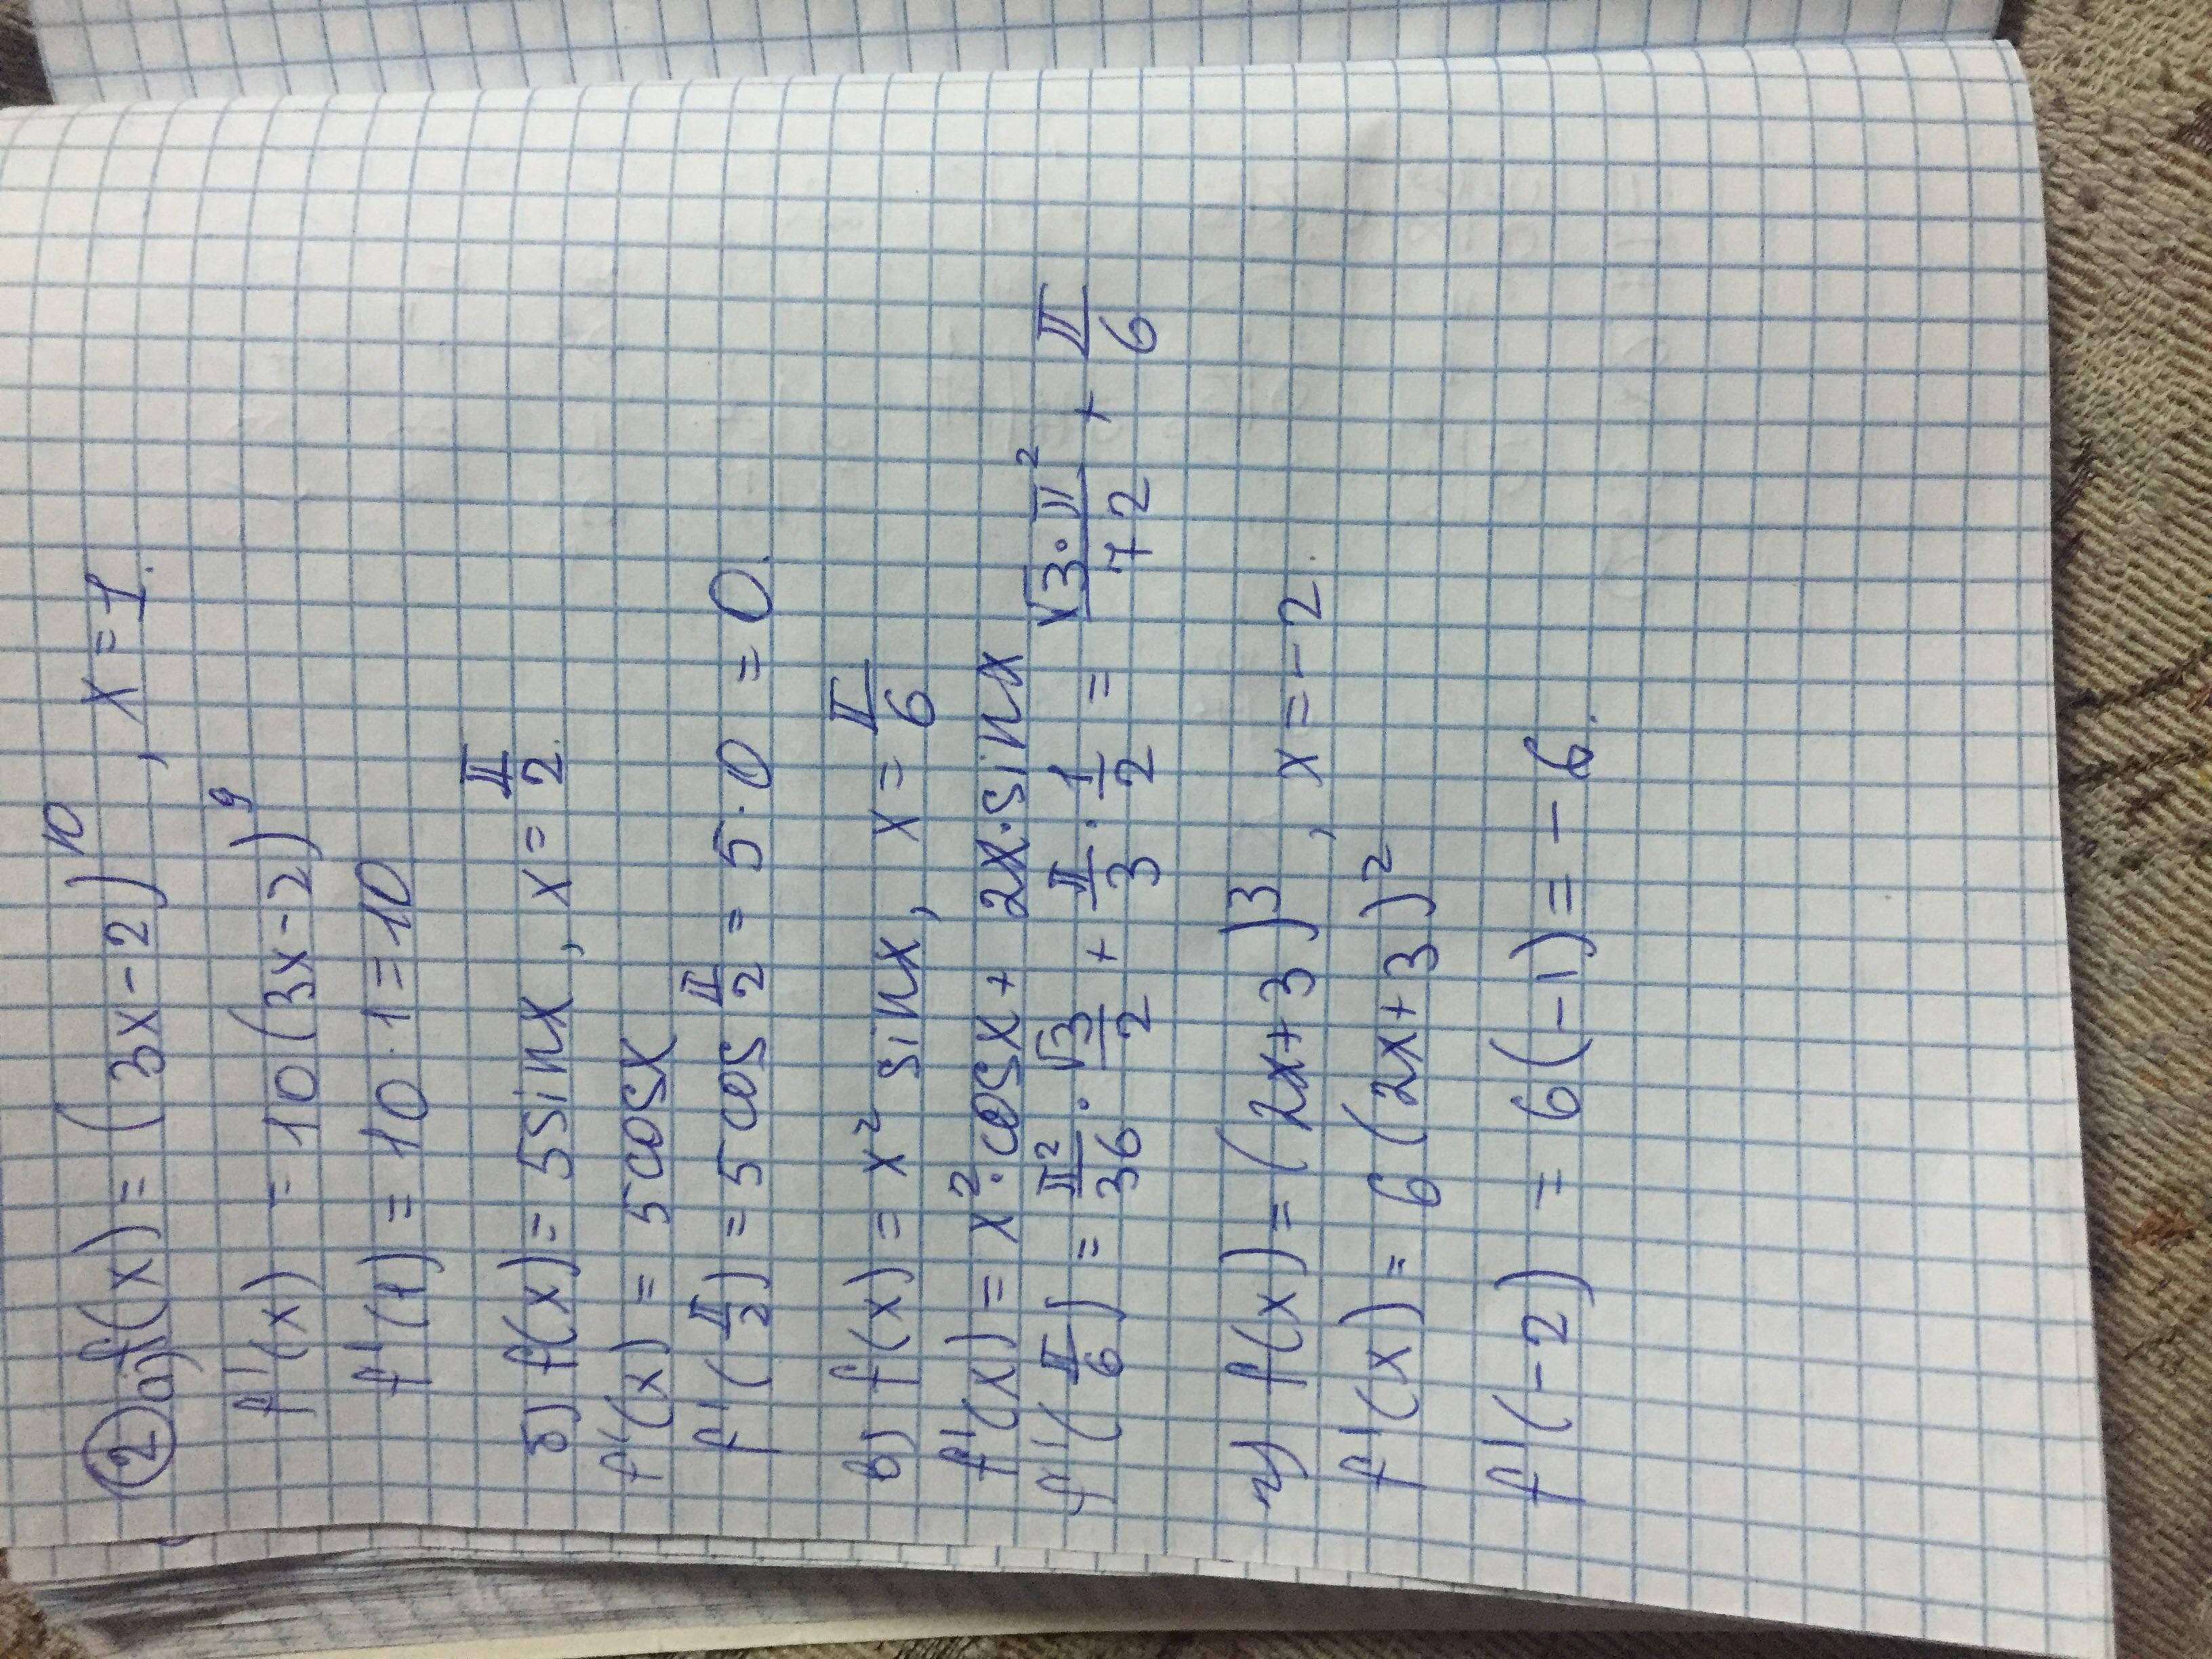 ② а) f(x) = (3x-2)¹⁰, x=1.
f'(x) = 10(3x-2)⁹
f'(1) = 10·1=10
б) f(x)= 5sinx, x= π/2.
f'(x) = 5cosx
f'(π/2) = 5cos π/2 = 5·0 = 0.
в) f(x) = x² sinx, x= π/6
f'(x) = x²·cosx + 2x·sinx
f'(π/6) = π²/36 · √3/2 + π/3 · 1/2 = √3·π²/72 + π/6
г) f(x) = (2x+3)³, x=-2.
f'(x) = 6(2x+3)²
f'(-2) = 6(-1)=-6.